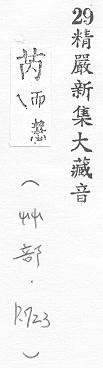 29精嚴新集大藏音
芮
而慧
(艸部.P.723)